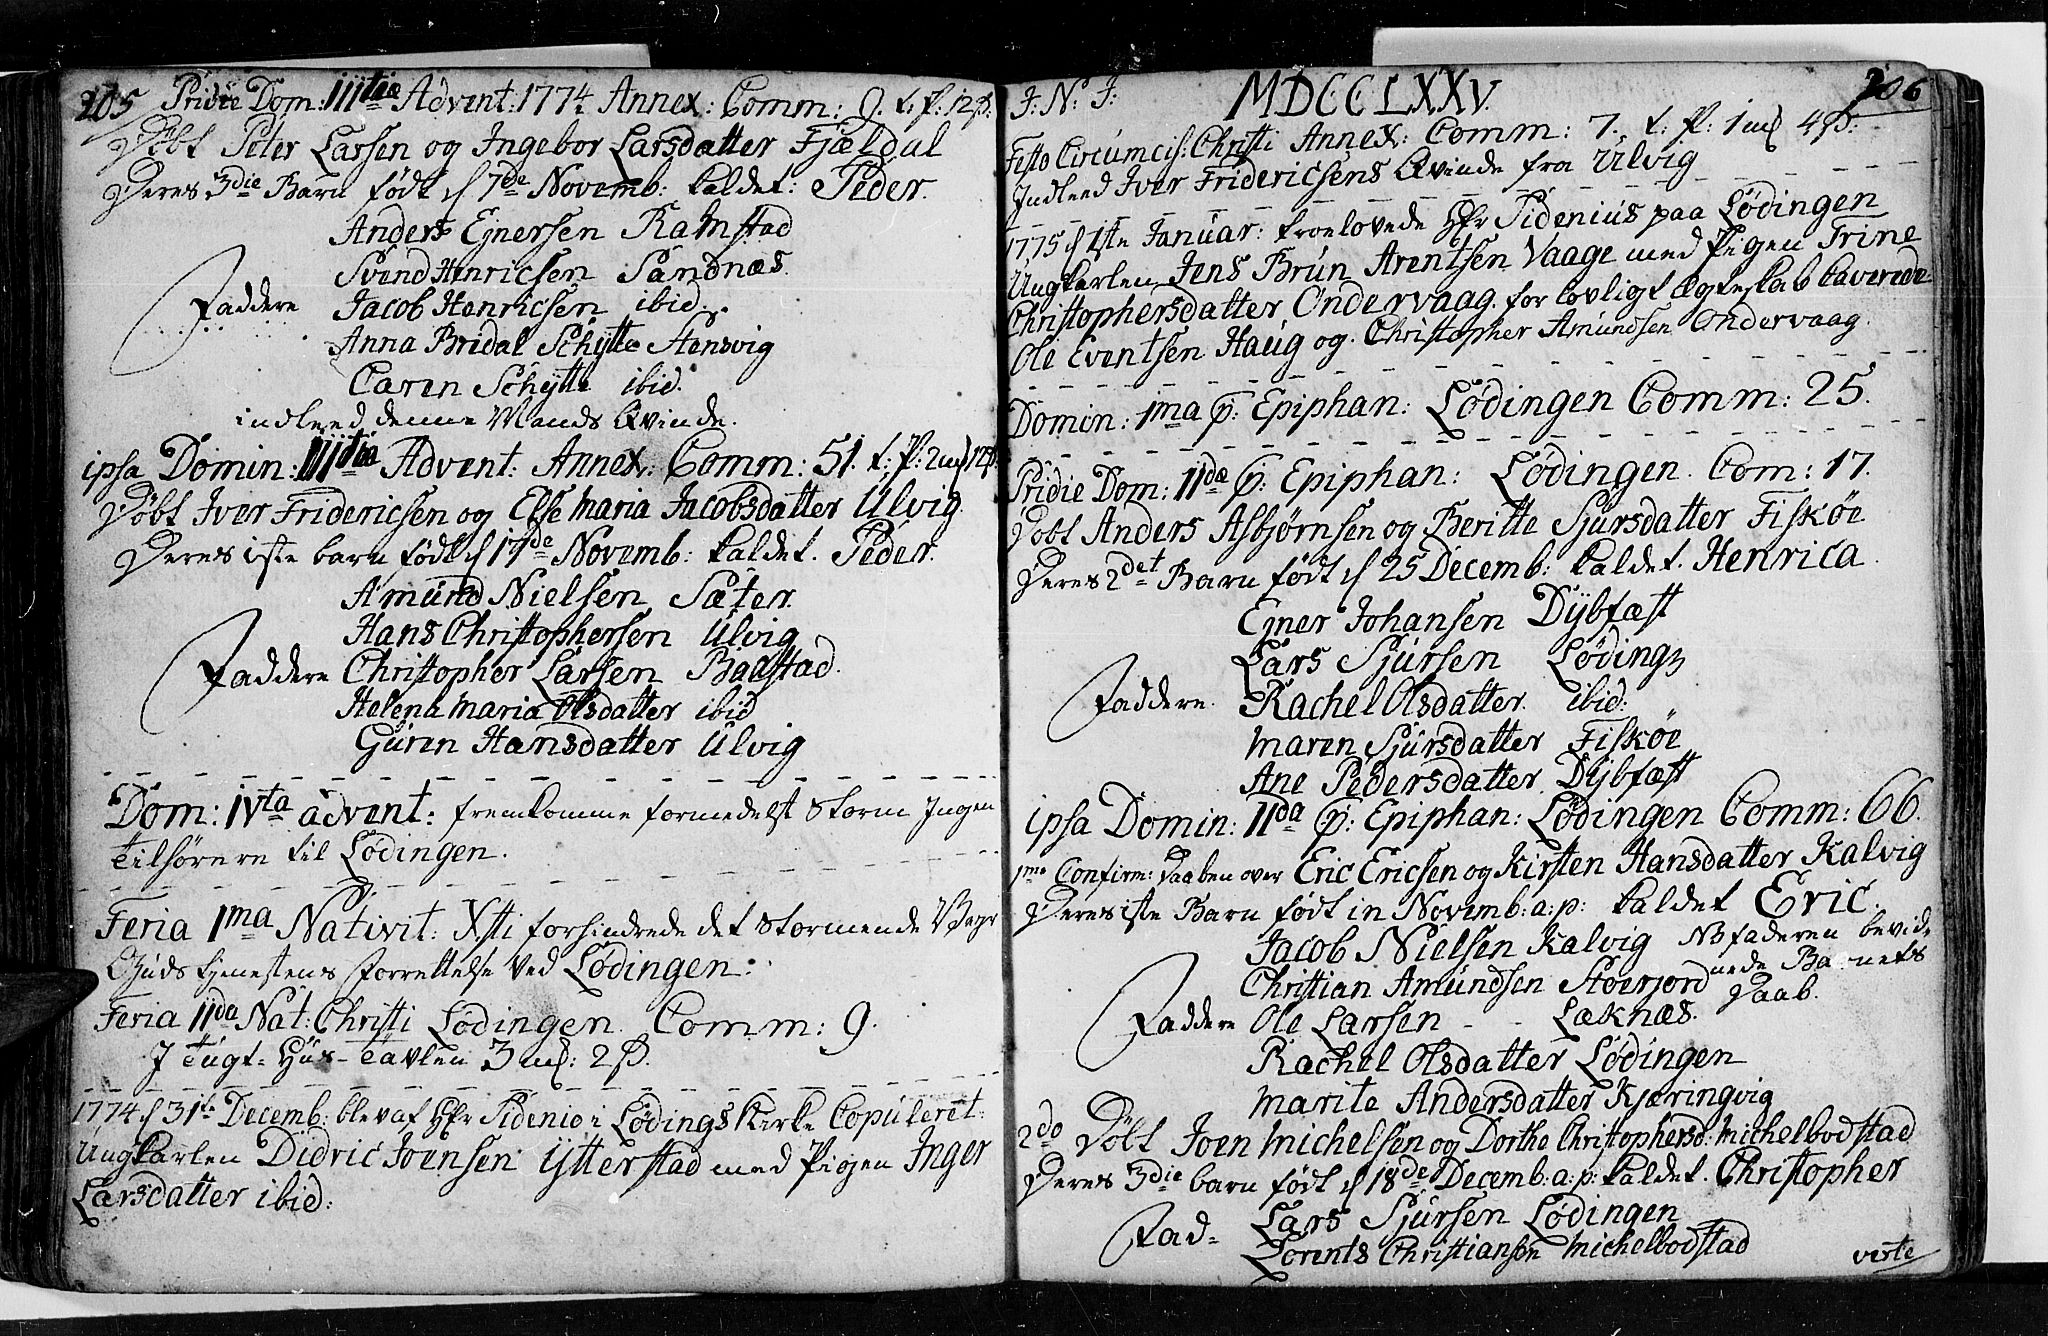 205 Pridie Dom: IIItiæ Advent: 1774 Annex: Comm: 9. t. f. 12 ß.
Døbt Peter Larsen og Ingebor Larsdatter Fjældal
Deres 3die Barn født d 7de Novemb: kaldet: Peder.
Anders Ejnersen Ramstad
Svend Henricsen Sandnæs.
Faddere Jacob Henricsen ibid.
Anna Bredal Schytte Stensvig
Caren Schytte ibid.
indleed denne Mands Qvinde.
ipsa Domin: IIItia Advent: Annex: Comm: 51. t. f: 2 mk 12 ß.
Døbt Iver Fridericsen og Else Maria Jacobsdatter Ulvig
Deres 1ste barn født d 17de Novemb: kaldet. Peder.
Amund Nielsen Sæter.
Hans Christophersen Ulvig
Faddere Christopher Larsen Baastad.
Helena Maria Olsdatter ibid
Guren Hansdatter Ulvig
Dom: IVta advent: fremkomme formedelst Storm Ingen
Tilhørere til Lødingen.
Feria 1ma Nativit: Xsti forhindrede det stormende Vejr
Guds tjenestens Forrettelse ved Lødingen.
Feria IIda Nat: Christi Lødingen. Comm: 9.
I Tugt-Hus-Tavlen 3 mk: 2 ß.
1774 d 31te Decemb: blev af Hr Sidenio i Lødings Kirke Copuleret
Ungkarlen Didric Joensen Ytterstad med Pigen Inger
Larsdatter ibid:
J. N. J. MDCCLXXV. 206
Festo Circumcis: Christi Annex: Comm: 7. t. f: 1 mk 4 ß.
Indleed Iver Fridericsens Qvinde fra Ulvig
1775 d 1ste Januar: trolovede Hr Sidenius paa Lødingen
Ungkarlen Jens Brun Arentsen Vaage med Pigen Trine
Christophersdatter Ondervaag. for lovligt Ægteskab caverede
Ole Eventsen Haug og Christopher Amundsen Ondervaag.
Domin: 1ma p: Epiphan: Lødingen Comm: 25.
Pridie Dom: IIdæ p: Epiphan: Lødingen. Com: 17.
Døbt Anders Asbjørnsen og Beritte Sjursdatter Fiskøe
Deres 2det Barn født d 25 Decemb: kaldet. Henrica.
Ejner Johansen Dybfæst
Lars Sjursen Løding
Faddere. Rachel Olsdatter. ibid:
Maren Sjursdatter Fiskøe
Ane Pedersdatter Dybfæst
ipsa Domin: IIda p: Epiphan: Lødingen Comm: 66.
1mo Confirm: Daaben over Eric Ericsen og Kirsten Hansdatter Kalvig
Deres 1ste Barn født in Novemb: a: p: kaldet Eric.
Jacob Nielsen Kalvig NB faderen bevid-
Christian Amundsen Stoerjord nede Barnets
Faddere Ole Larsen - - Læknæs. Daab.
Rachel Olsdatter Lødingen
Marite Andersdatter Kjæringvig
2do Døbt Joen Michelsen og Dorthe Christophersd: Michelbodstad
Deres 3die barn født d 18de Decemb: a: p: kaldet. Christopher
Fad- Lars Sjursen Lødingen
Lorents Christiansen Michelbodstad
verte